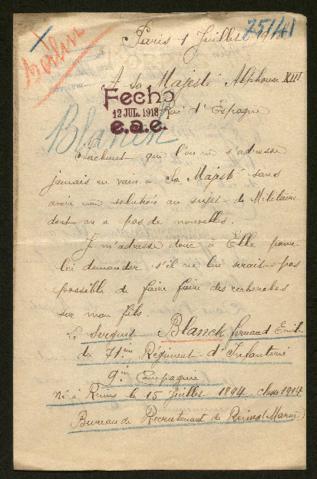 Berlin
75/141
Paris 1 Juillet 1918
A Sa Majesté Alphonse XIII
Fecho
12 JUL. 1918
e.a.e.
Roi d'Espagne
Blanck
Sachant que l'on ne s'adresse
jamais en vain à Sa Majesté sans
avoir une solution au sujet de Militaire
dont on a pas de nouvelles.
Je m'adresse donc à Elle pour
lui demander s'il ne lui serait pas
possible de faire faire des recherches
sur mon fils.
Le Sergent Blanck fernand Emile
du 71ème Régiment d'Infanterie
9ème Compagnie
Né à Reims le 15 juillet 1894 classe 1914
Bureau de Recrutement de Reims (Marne)